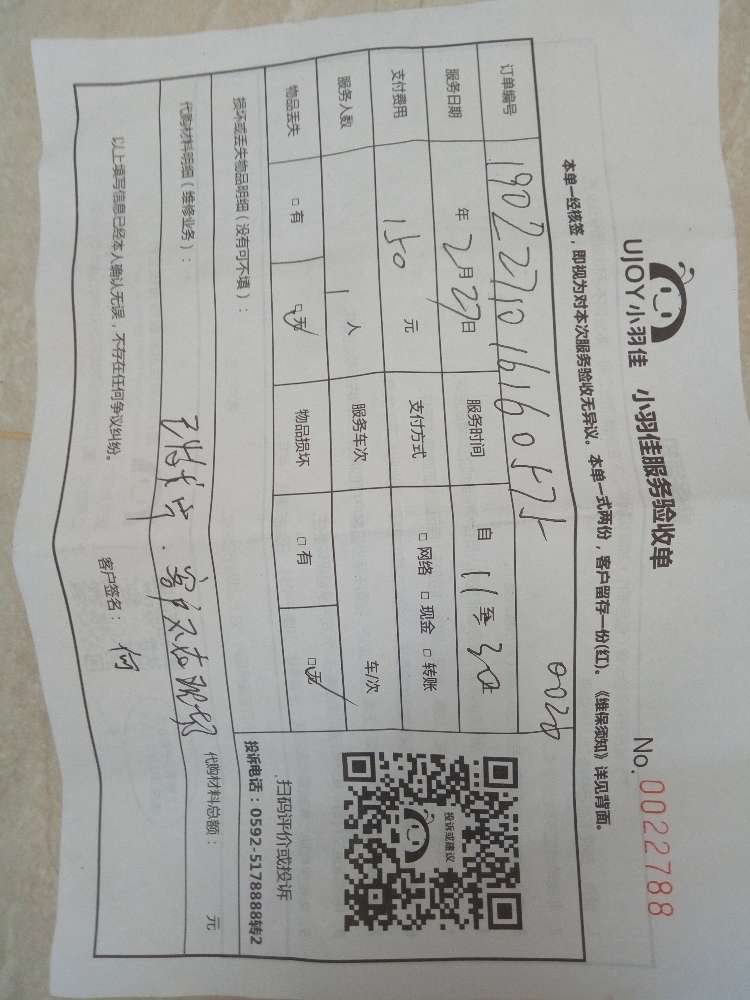 UJOY小羽佳 小羽佳服务验收单
No. 0022788
本单一经核签，即视为对本次服务验收无异议。本单一式两份，客户留存一份(红)。《维保须知》详见背面。
订单编号 0020
服务日期 年 2月27日 服务时间 自 11 至 3点
支付费用 150 元 支付方式 □网络 □现金 □转账
服务人数 1 人 服务车次 车/次
物品丢失 □有 □无 物品损坏 □有 □无
损坏或丢失物品明细（没有可不填）：
投诉或建议
扫码评价或投诉
投诉电话：0592-5178888转2
代购材料明细（维修业务）： 代购材料总额： 元
客户不在现场
以上填写信息已经本人确认无误，不存在任何争议纠纷。 客户签名： 何